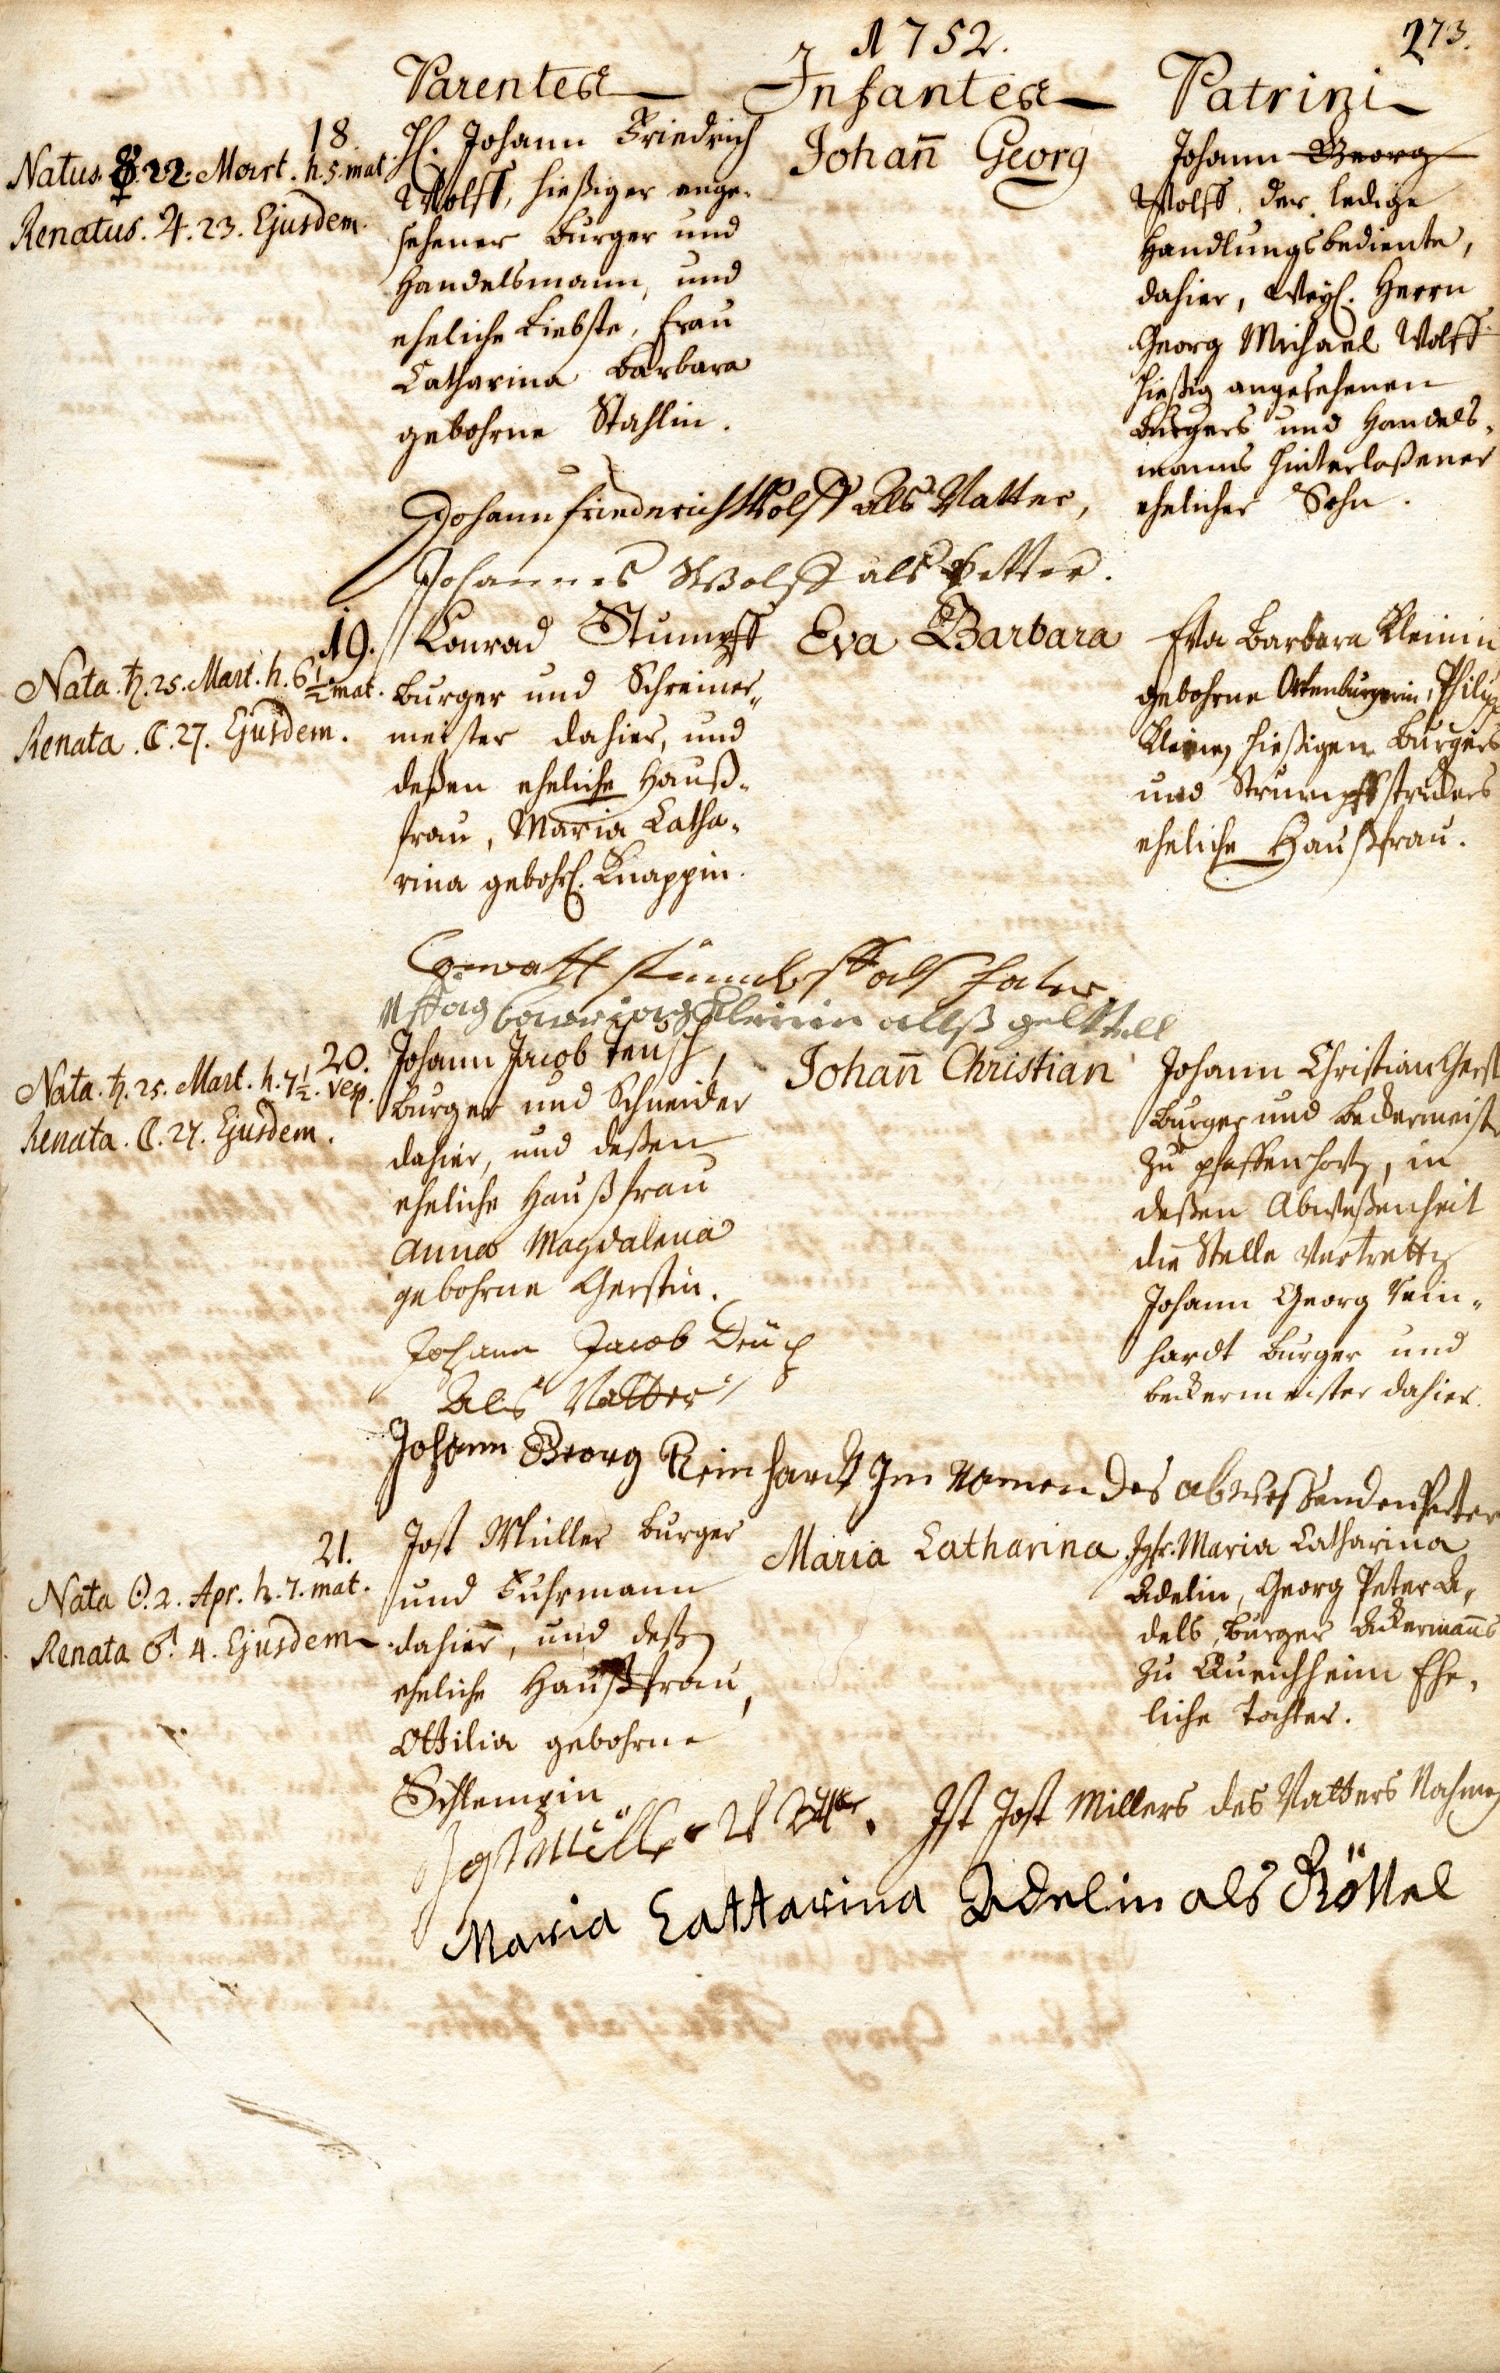 1752.
273.
Parentes
Infantes
Patrini
18.
Natus ☿. 22. Mart. h. 5. mat.
Renatus. ♃. 23. Ejusdem.
H. Johann Friedrich
Wolff, hießiger ange-
sehener Burger und
Handelsmann, und
eheliche Liebste, Frau
Catharina Barbara
gebohrne Stahlin.
Johann Georg
Johann Georg
Wolff, der ledige
Handlungsbediente,
dahier, Weyl. Herrn
Georg Michael Wolff
hießig angesehenen
Burgers und Handels-
manns hinterlaßener
ehelicher Sohn.
Johann Friederich Wolff als Vatter,
Johannes Wolff als Petter.
19.
Nata. ♄. 25. Mart. h. 6 1/2 mat.
Renata. ☾. 27. Ejusdem.
Conrad Stumpff
Burger und Schreiner-
meister dahier, und
deßen eheliche Hauß-
frau, Maria Catha-
rina gebohrl. Knappin.
Eva Barbara
Eva Barbara Kleinin
gebohrne Ottenburgerin, Philipp
Kleinen, hießigen Burgers
und Strumpffstrickers
eheliche Haußfrau.
als
20.
Nata. ♄. 25. Mart. h. 7 1/2. vesp.
Renata. ☾. 27. Ejusdem.
Johann Jacob Teusch,
Burger und Schneider
dahier, und deßen
eheliche Haußfrau
Anna Magdalena
gebohrne Gerstin.
Johann Christian
Johann Christian Gerst
Burger und Beckermeister
zu Pfaffenhofen, in
deßen Abweßenheit
die Stelle vertretten
Johann Georg Rein-
hardt Burger und
Beckermeister dahier.
Johann Jacob
Als Vatter
Johann Georg Reinhardt Im Namen des abweßenden Petter
21.
Nata ☉. 2. Apr. h. 7. mat.
Renata ♂. 4. Ejusdem
Jost Müller Burger
und Fuhrmann
dahier, und deß
eheliche Haußfrau,
Ottilia gebohrne
Schlempin
Maria Catharina
Jgfr. Maria Catharina
Adelin, Georg Peter A-
dels, Burger Ackermanns
zu Queichheim Ehe-
liche Tochter.
Jost Müller
Ist Jost Millers des Vatters Nahmen
Maria Cattarina Adelin als Göttel